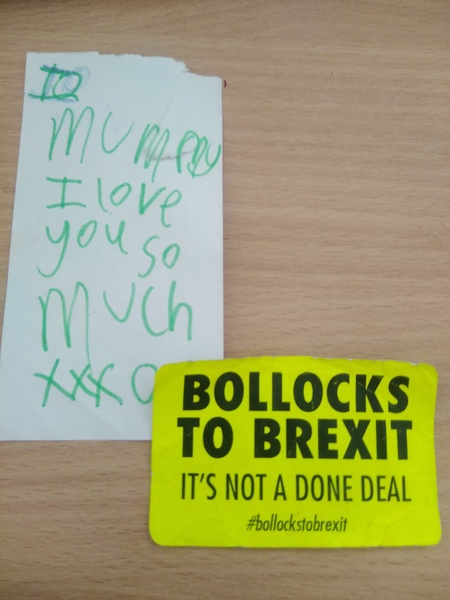 To
Mummy
I love
you so
much
xxxo
BOLLOCKS
TO BREXIT
IT'S NOT A DONE DEAL
#bollockstobrexit